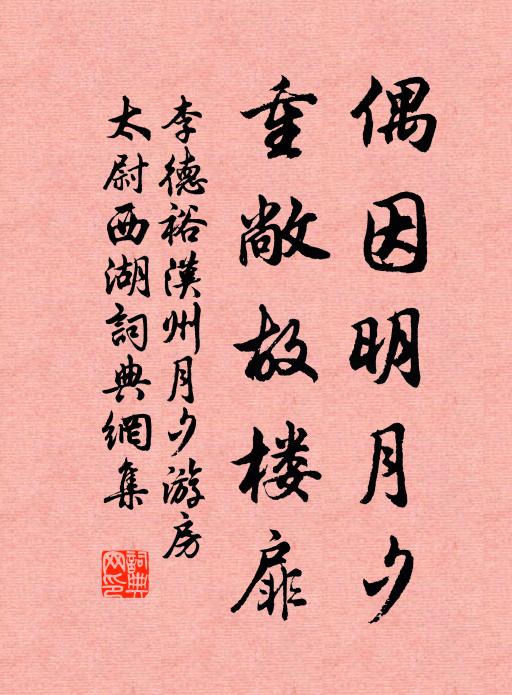 偶因明月夕
重敞故楼扉
李德裕漢州月夕游房
太尉西湖詞典網集
詞典網印